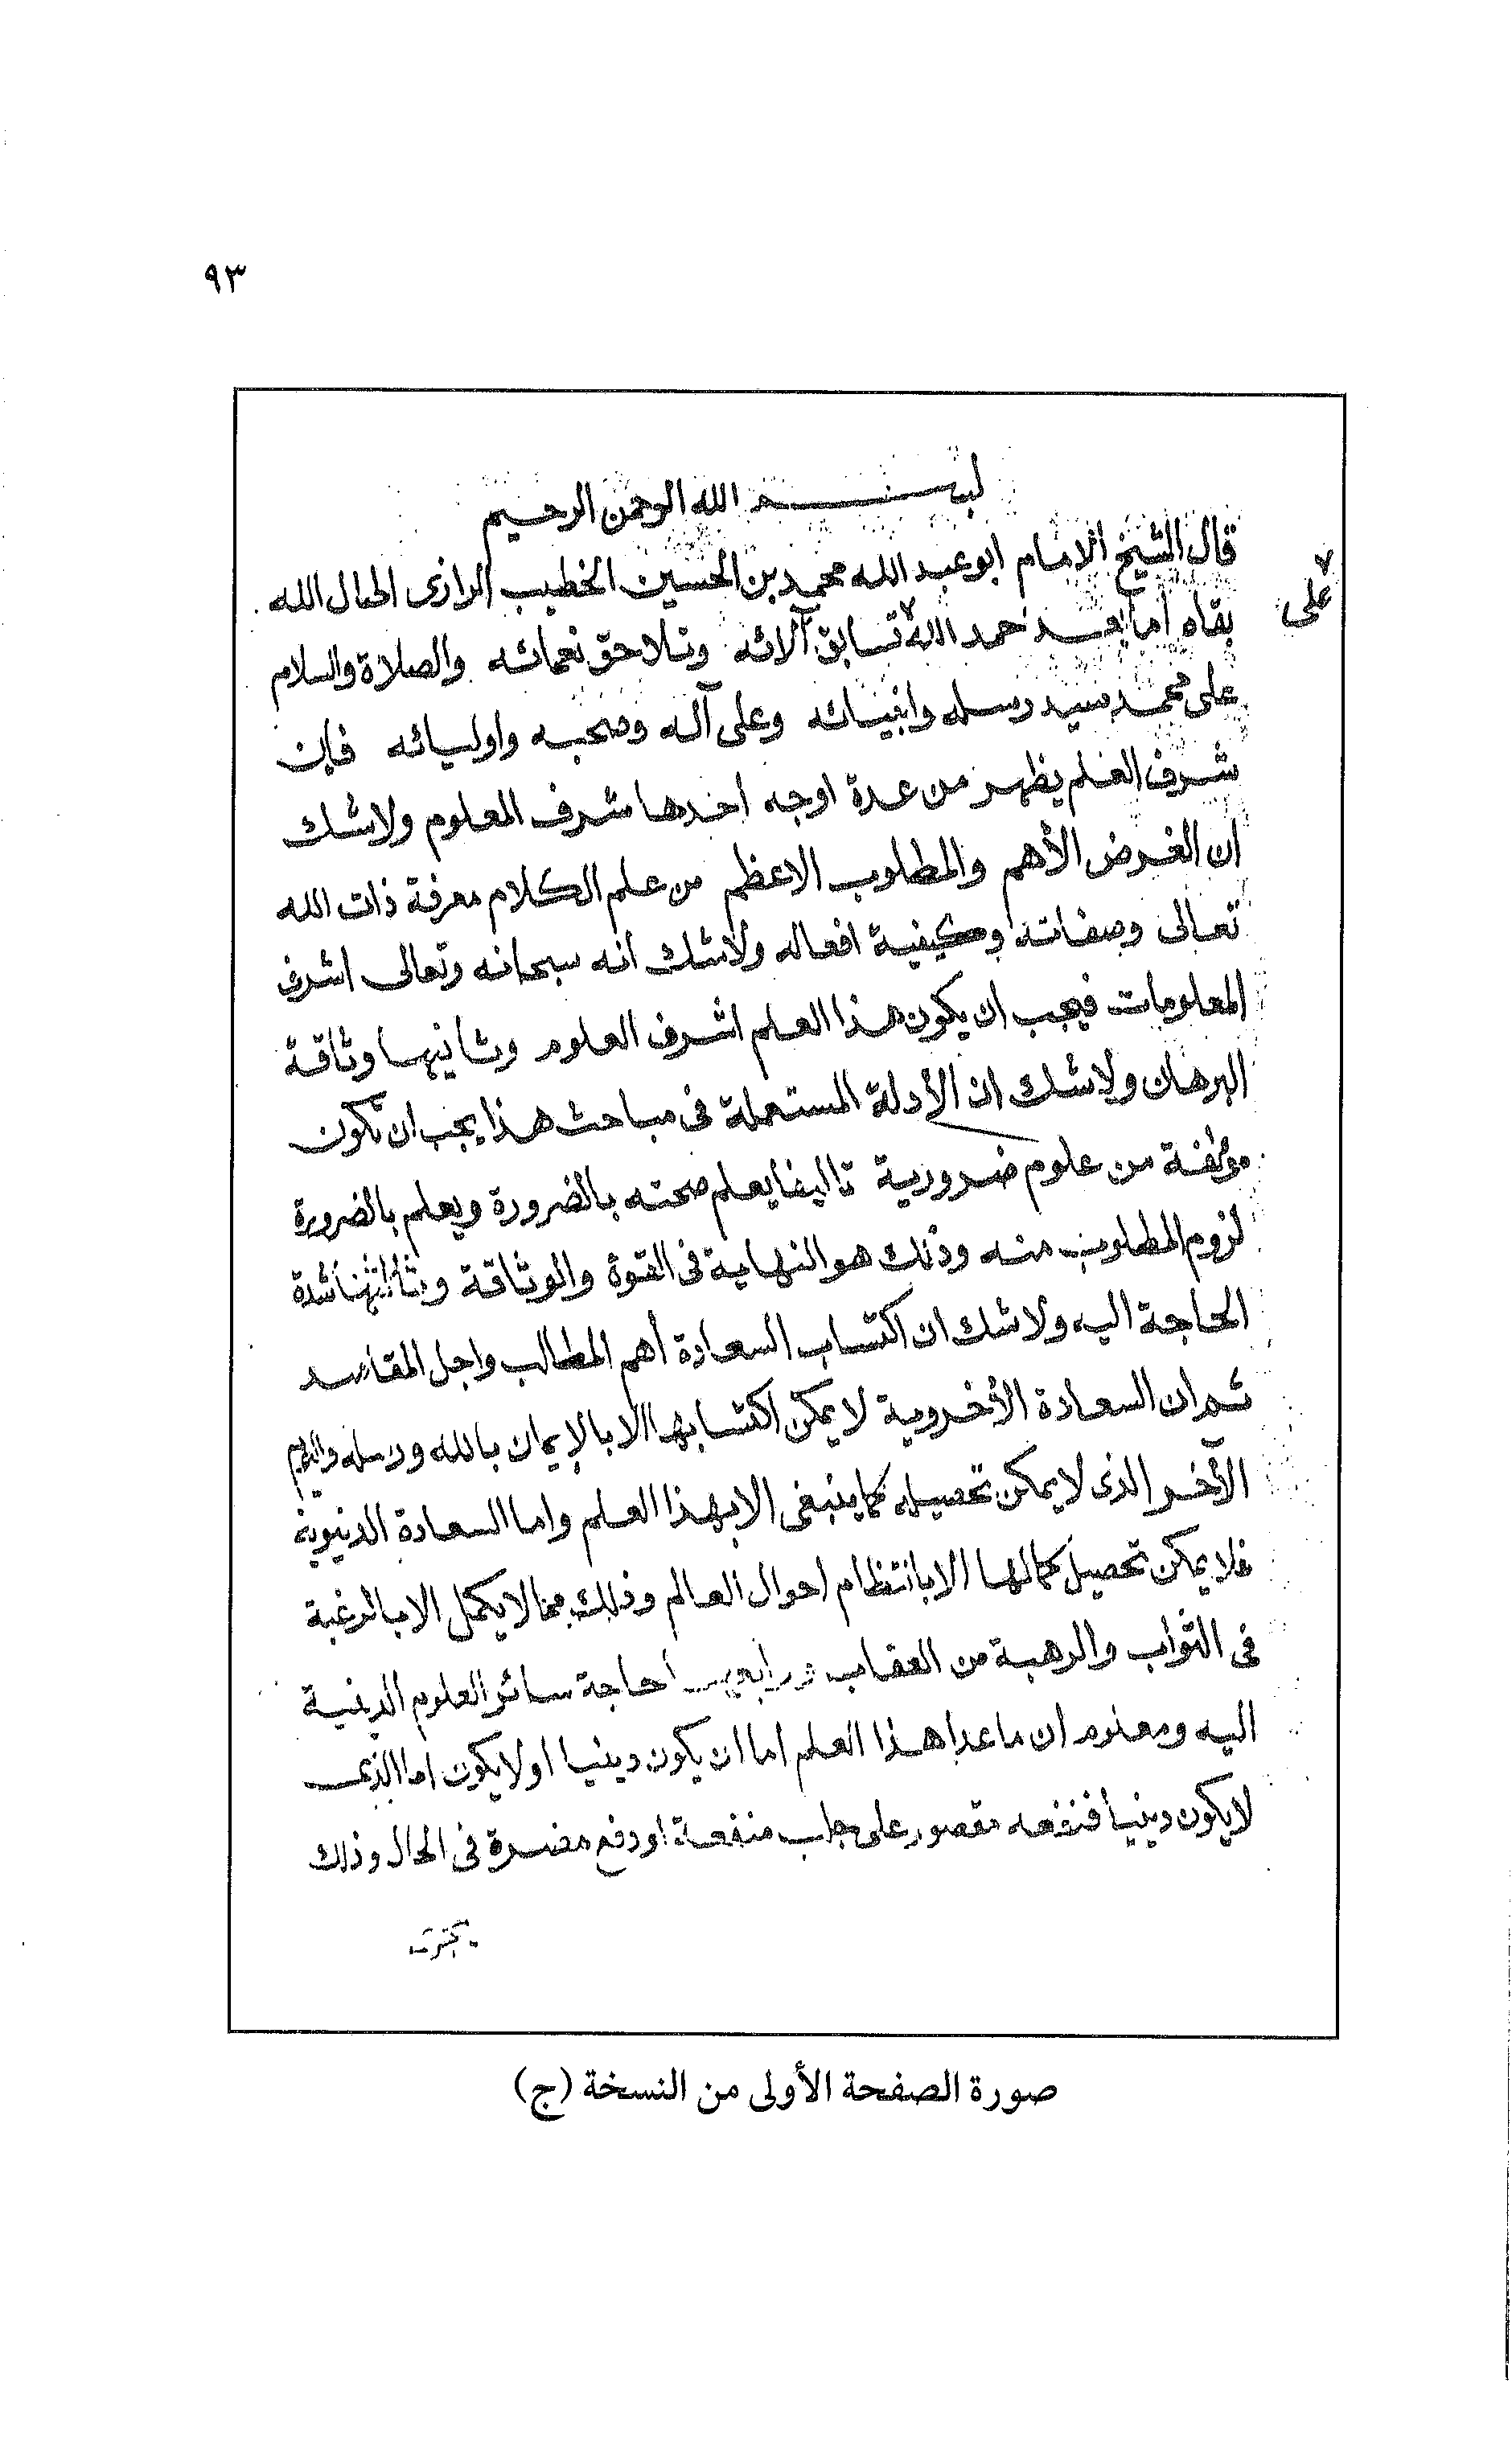 ٩٣
بسم الله الرحمن الرحيم
قال الشيخ الامام ابوعبد الله محمد بن الحسين الخطيب الرازى اطال الله
بقاه اما بعد حمد الله تسابق آلائه وتلاحق نعمائه والصلاة والسلام
على
على محمد سيد رسله وانبيائه وعلى آله وصحبه واوليائه فإن
شرف العلم يظهر من عدة اوجه احدها شرف المعلوم ولاشك
ان الغرض الأهم والمطلوب الاعظم من علم الكلام معرفة ذات الله
تعالى وصفاته وكيفية افعاله ولاشك أنه سبحانه وتعالى اشرف
المعلومات فيجب ان يكون هذا العلم اشرف العلوم وثانيها وثاقة
البرهان ولاشك ان الأدلة المستعملة فى مباحث هذا يجب ان تكون
مؤلفة من علوم ضرورية تاليفا يعلم صحته بالضرورة ويعلم بالضرورة
لزوم المطلوب منه وذلك هو النهاية فى القوة والوثاقة وثالثها شدة
الحاجة اليه ولاشك ان اكتساب السعادة أهم المطالب واجل المقاصد
ثم ان السعادة الأخروية لا يمكن اكتسابها الا بالإيمان بالله ورسله واليوم
الآخر الذى لا يمكن تحصيله كما ينبغى الا بهذا العلم واما السعادة الدنيوية
فلا يمكن تحصيل كمالها الا بانتظام احوال العالم وذلك مما لا يكمل الا بالرغبة
فى الثواب والرهبة من العقاب ورابعها حاجة سائر العلوم الدينية
اليه ومعلوم ان ماعدا هذا العلم اما ان يكون دينيا او لا يكون اما الذى
لا يكون دينياً فنفعه مقصور على جلب منفعة او دفع مضرة فى الحال وذلك
صورة الصفحة الأولى من النسخة (ج)